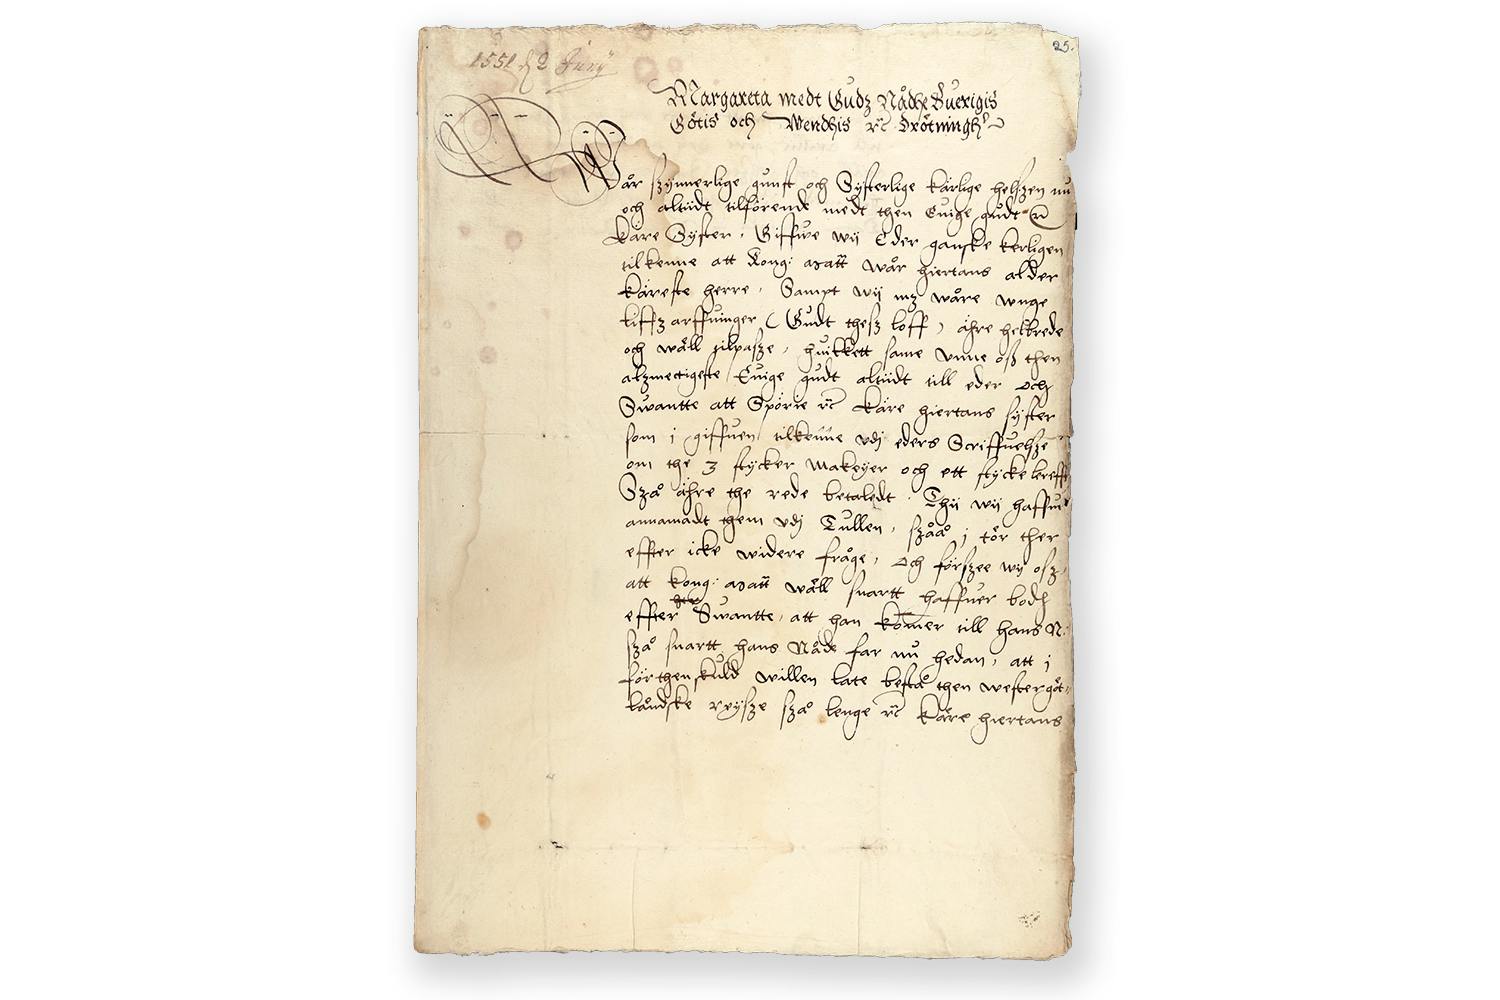 25.
1551 d 2 Juny
Margareta medt Gudz Nådhe Suerigis
Götis och Wendhis etc Drotningh
Wår szynnerlige gunst och Systerlige kärlige helszen nu
och altiidt tilförende medt then Euige gudt etc
Käre Syster, Giffwe wij Eder ganske kerligen
tilkenne att Kong: Matt wår hiertans alder
käreste herre, Sampt wij mz wåre wnge
liffz arffuinger (Gudt thesz loff) ähre helbrede
och wäll tilpasze, huilkett same vnne osz then
alzmectigeste Euige gudt altiidt till eder och
Swantte att Spörie etc Käre hiertans syster
som i giffuen tilkenne vdj eders Scriffuelsze
om the 3 stycker Makeyer och ett stycke lerefft
Szå ähre the rede betaledt. Thij wij haffue
annamadt them vdj Tullen, szåå i tör ther
effter icke widere fråge, och förszee wij osz,
att kong: Matt wäll snartt haffuer bodh
effter Swantte, att han komer till hans N:
szå snartt hans Nåde far nu hedan, att i
förthenskuld willen late bestå then westergöt-
låndske reysze szå lenge etc Käre hiertans